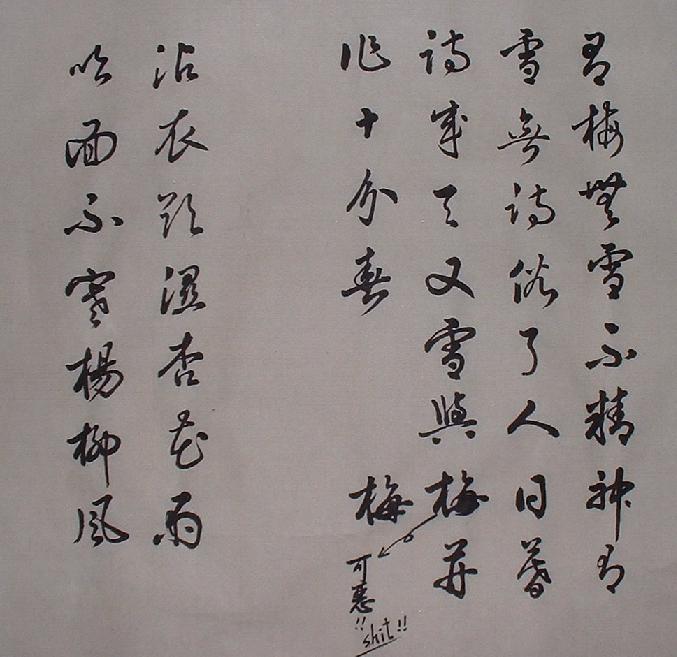 有梅無雪不精神有
雪無詩俗了人日暮
詩成天又雪與梅并
作十分春
梅
可惡!!
shit!!
沾衣欲濕杏花雨
吹面不寒楊柳風